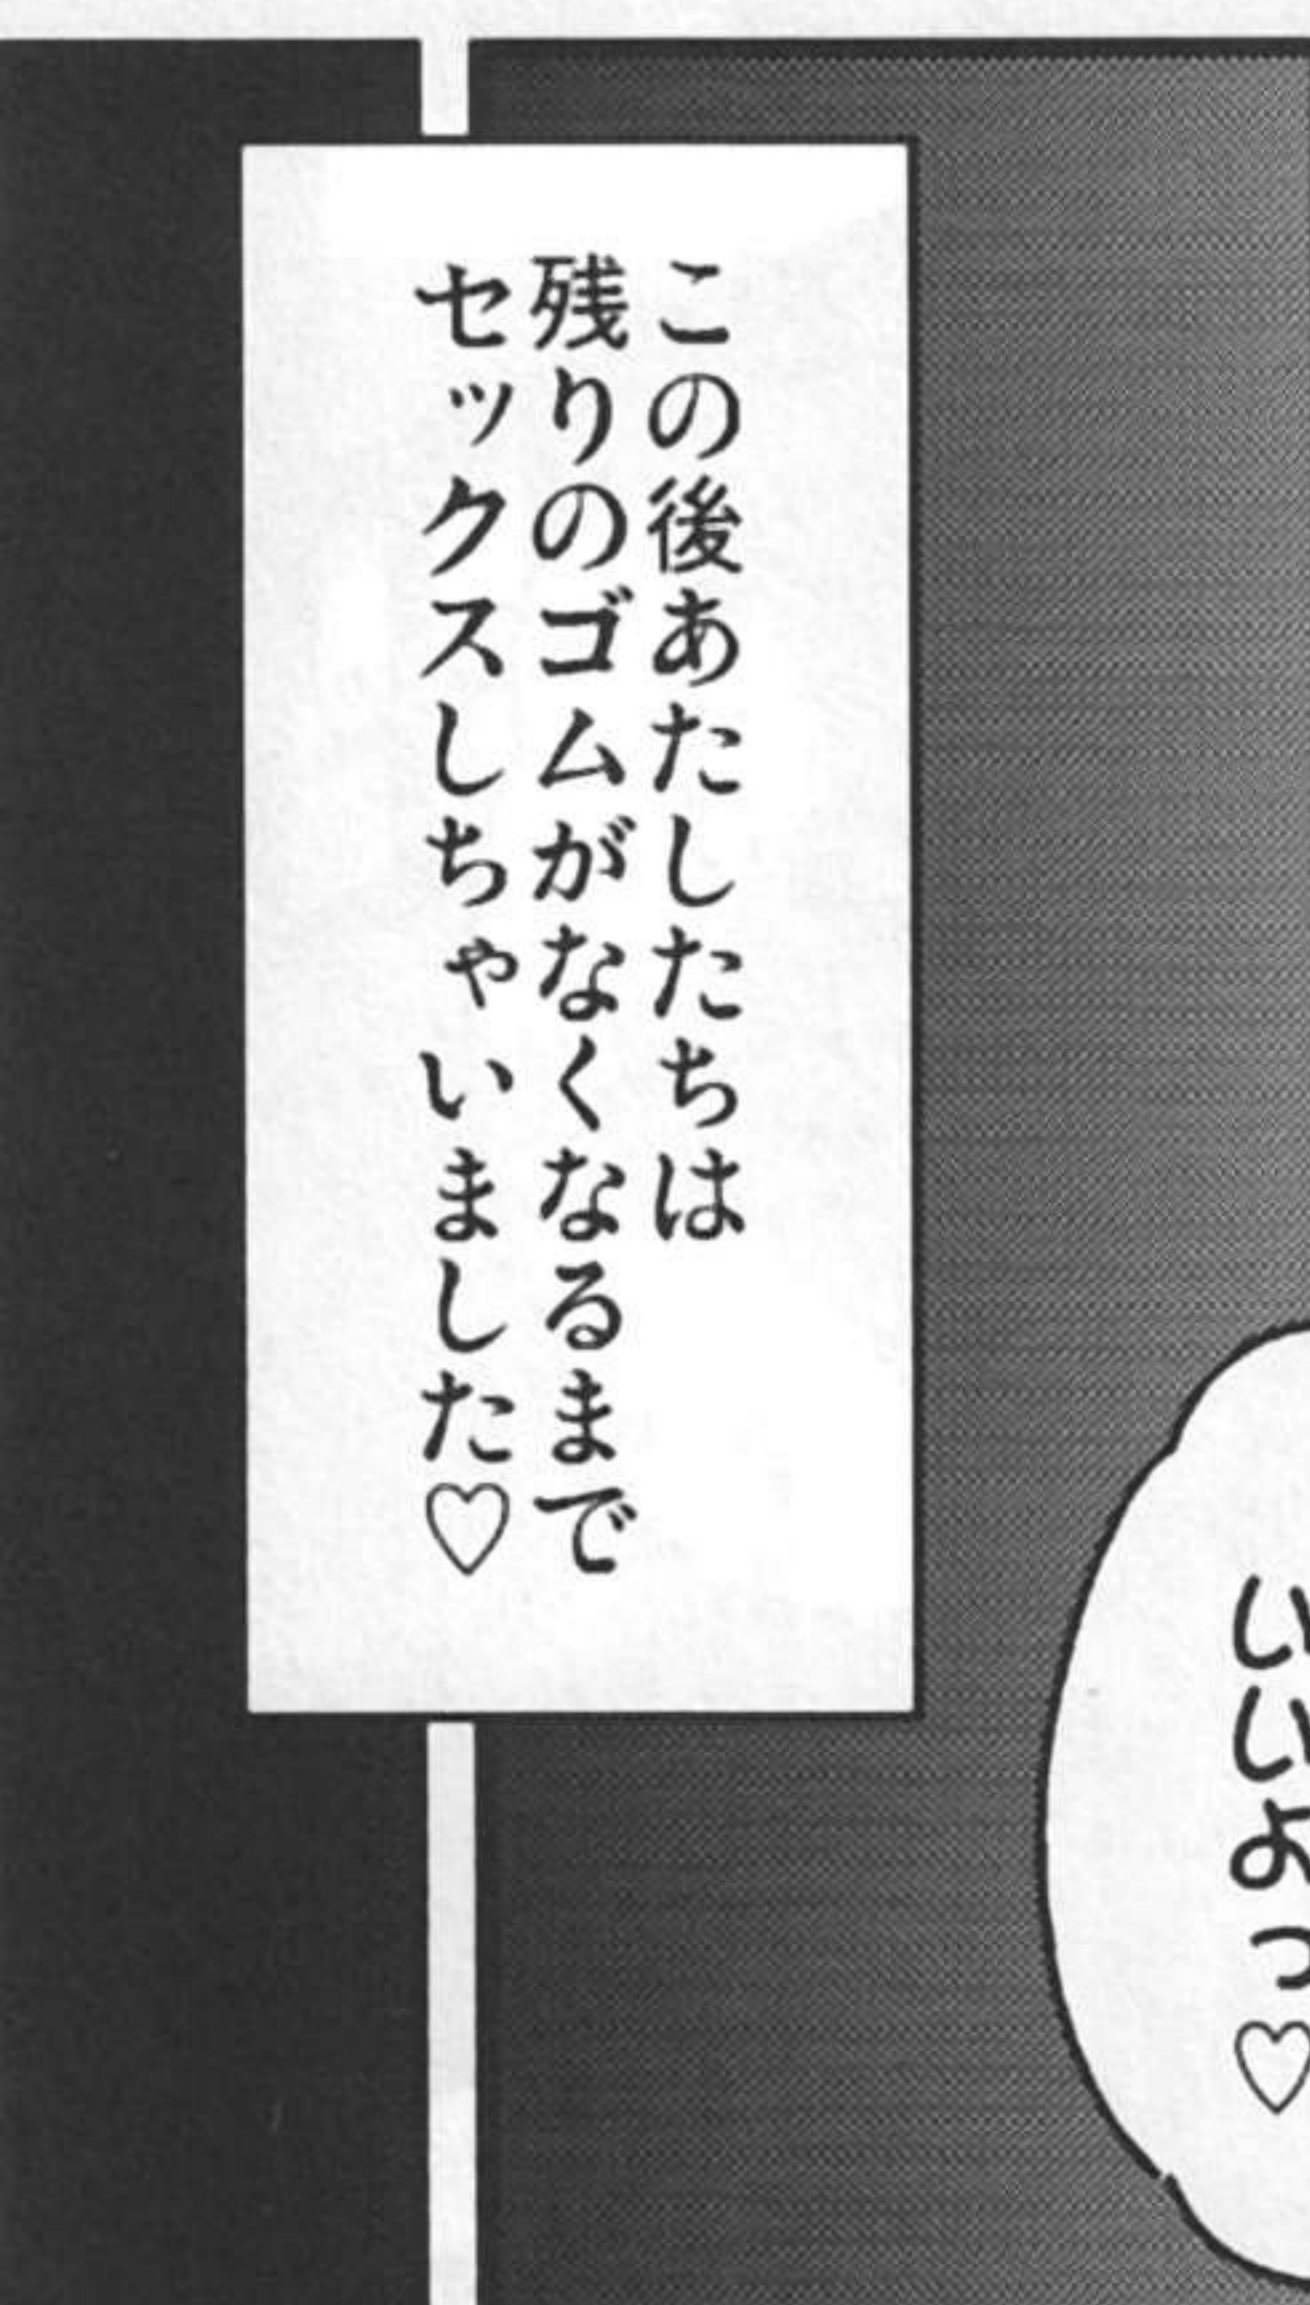 いいよっ♡
この後あたしたちは
残りのゴムがなくなるまで
セックスしちゃいました♡